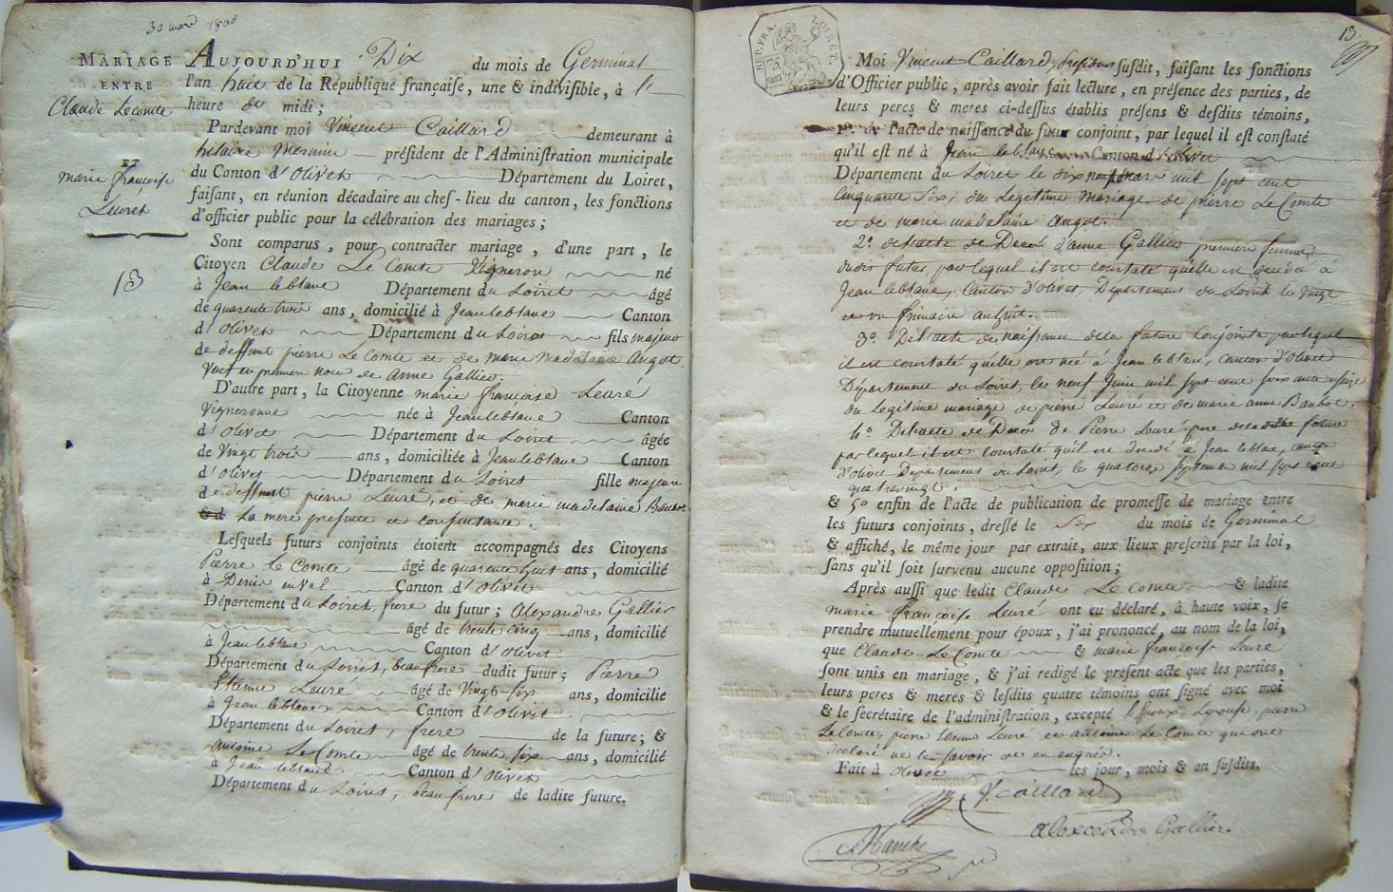 30 mars 1800
MARIAGE
ENTRE
Claude Lecomte
ET
marie francoise
Leuret
13
AUJOURD'HUI Dix du mois de Germinal
l'an huit de la République françaiſe, une & indiviſible, à
heure de midi;
Pardevant moi Vincent Caillard demeurant à
hilaire Mesmin préſident de l'Adminiſtration municipale
du Canton d'Olivet Département du Loiret,
faiſant, en réunion décadaire au chef-lieu du canton, les fonctions
d'officier public pour la célébration des mariages;
Sont comparus, pour contracter mariage, d'une part, le
Citoyen Claude Le Comte Vigneron né
à Jean leblanc Département du Loiret âgé
de quarente trois ans, domicilié à Jean leblanc Canton
d'Olivet Département du Loiret fils majeur
de deffunt pierre Le Comte et de marie Madelaine Angot
Veuf en premier noce de Anne Gallier.
D'autre part, la Citoyenne marie francoise Leuré
Vigneronne née à Jean leblanc Canton
d'Olivet Département du Loiret âgée
de Vingt trois ans, domiciliée à Jean leblanc Canton
d'Olivet Département du Loiret fille majeure
de deffunt pierre Leuré, et de marie madelaine
La mere presente et consentante.
Leſquels futurs conjoints étoient accompagnés des Citoyens
Pierre le Comte âgé de quarente huit ans, domicilié
à Denis en Val Canton d'Olivet
Département du Loiret, frere du futur; Alexandre Gallier
âgé de trente cinq ans, domicilié
à Jean leblanc Canton d'Olivet
Département du Loiret, beau frere dudit futur; Pierre
Etienne Leuré âgé de Vingt six ans, domicilié
à Jean leblanc Canton d'Olivet
Département du Loiret, frere de la future; &
antoine Le Comte âgé de trente six ans, domicilié
à Jean leblanc Canton d'Olivet
Département du Loiret, beau frere de ladite future.
13
REP. FRA. LOIRET.
Moi Vincent Caillard, ſuſdit, faiſant les fonctions
d'Officier public, après avoir fait lecture, en préſence des parties, de
leurs peres & meres ci-deſſus établis préſens & deſdits témoins,
1º. de l'acte de naiſſance du futur conjoint, par lequel il eſt conſtaté
qu'il eſt né à Jean leblanc Canton d'Olivet
Département du Loiret le dix mil sept cent
cinquante six, du Legitime Mariage de pierre Le Comte
et de marie madelaine Angot.
2º. de l'acte de Decès d'anne Gallier premiere femme
dudit futur, par lequel il est constaté quelle est décédée à
Jean leblanc, Canton d'olivet Département du Loiret le vingt
frimaire an huit.
3º. De l'acte de naissance de la future conjointe par lequel
il est constaté quelle est née à Jean leblanc, canton d'olivet
Département du Loiret, le neuf Juin mil sept cent soixante seize
du Legitime mariage de pierre Leuré et de marie anne
4º. De l'acte de Decès de Pierre Leuré pere de la ditte future
par lequel il est constaté qu'il est décédé à Jean leblanc, canton
d'olivet Département du Loiret, le quatorze septembre mil sept cent
quatre vingt.
& 5º enfin de l'acte de publication de promeſſe de mariage entre
les futurs conjoints, dreſſé le Six du mois de Germinal
& affiché, le même jour par extrait, aux lieux preſcrits par la loi,
ſans qu'il ſoit ſurvenu aucune oppoſition;
Après auſſi que ledit Claude Le Comte & ladite
marie francoise Leuré ont eu déclaré, à haute voix, ſe
prendre mutuellement pour époux, j'ai prononcé, au nom de la loi,
que Claude Le Comte & marie francoise Leuré
ſont unis en mariage, & j'ai rédigé le préſent acte que les parties,
leurs peres & meres & leſdits quatre témoins ont ſigné avec moi
& le ſecrétaire de l'adminiſtration, excepté pierre
Le Comte, pierre Etienne Leuré et antoine Le Comte qui ont
declaré ne le savoir de ce enquis.
Fait à Olivet les jour, mois & an ſuſdits.
V. Caillard
Alexcendre Gallier